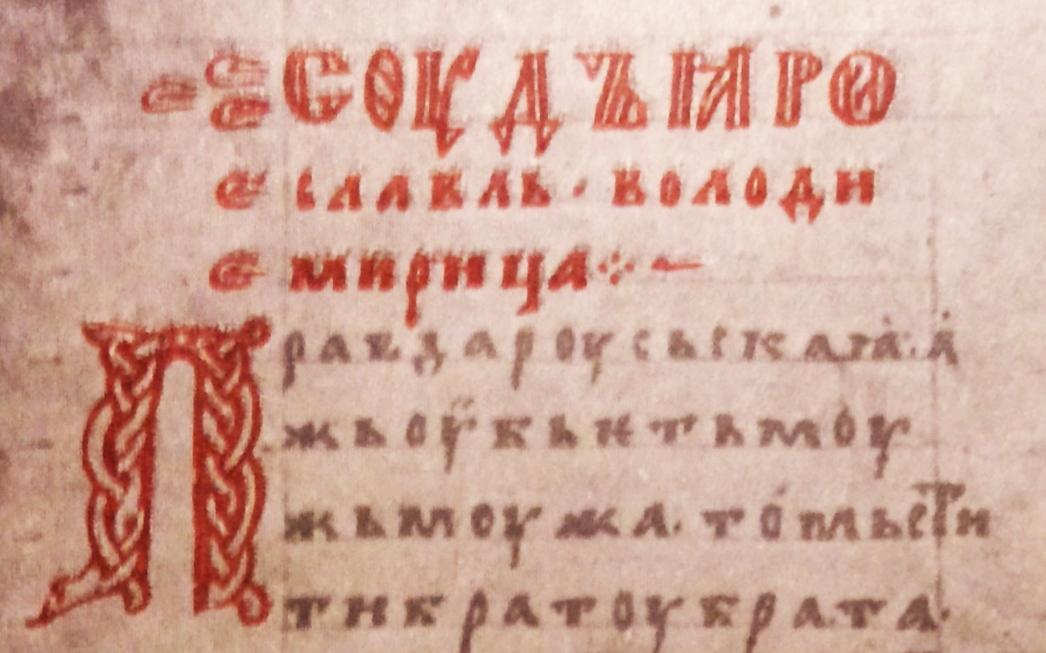 СОУДЪ ꙖРО
СЛАВЛЬ · ВОЛОДИ
МИРИЦА ⁘ —
Правда роусьскаꙗ · а
жь оубьѥть моу
жь моужа · то мьстⷮи
ти братоу брата ·